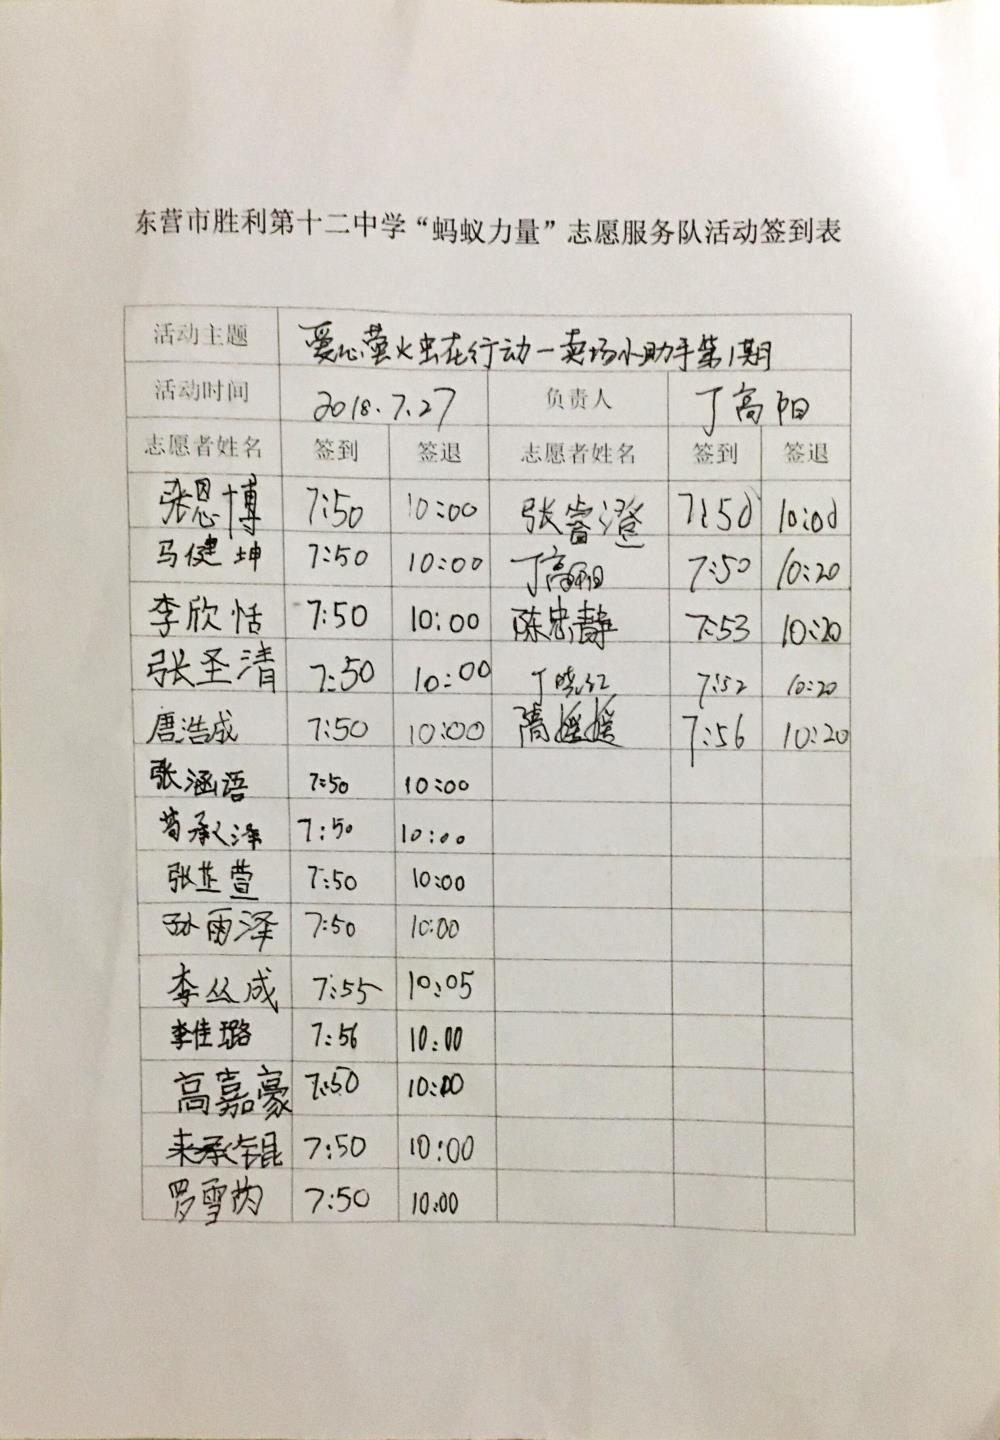 东营市胜利第十二中学“蚂蚁力量”志愿服务队活动签到表
活动主题 爱心萤火虫在行动—卖场小助手第1期
活动时间 2018.7.27 负责人 丁高阳
志愿者姓名 签到 签退 志愿者姓名 签到 签退
张恩博 7:50 10:00 张睿澄 7:50 10:00
马健坤 7:50 10:00 丁高阳 7:50 10:20
李欣恬 7:50 10:00 陈忠静 7:53 10:20
张圣清 7:50 10:00 丁晓红 7:52 10:20
唐浩成 7:50 10:00 隋媛媛 7:56 10:20
张涵语 7:50 10:00
苟承泽 7:50 10:00
张芷萱 7:50 10:00
孙雨泽 7:50 10:00
李丛成 7:55 10:05
李佳璐 7:56 10:00
高嘉豪 7:50 10:00
来承锟 7:50 10:00
罗雪 7:50 10:00